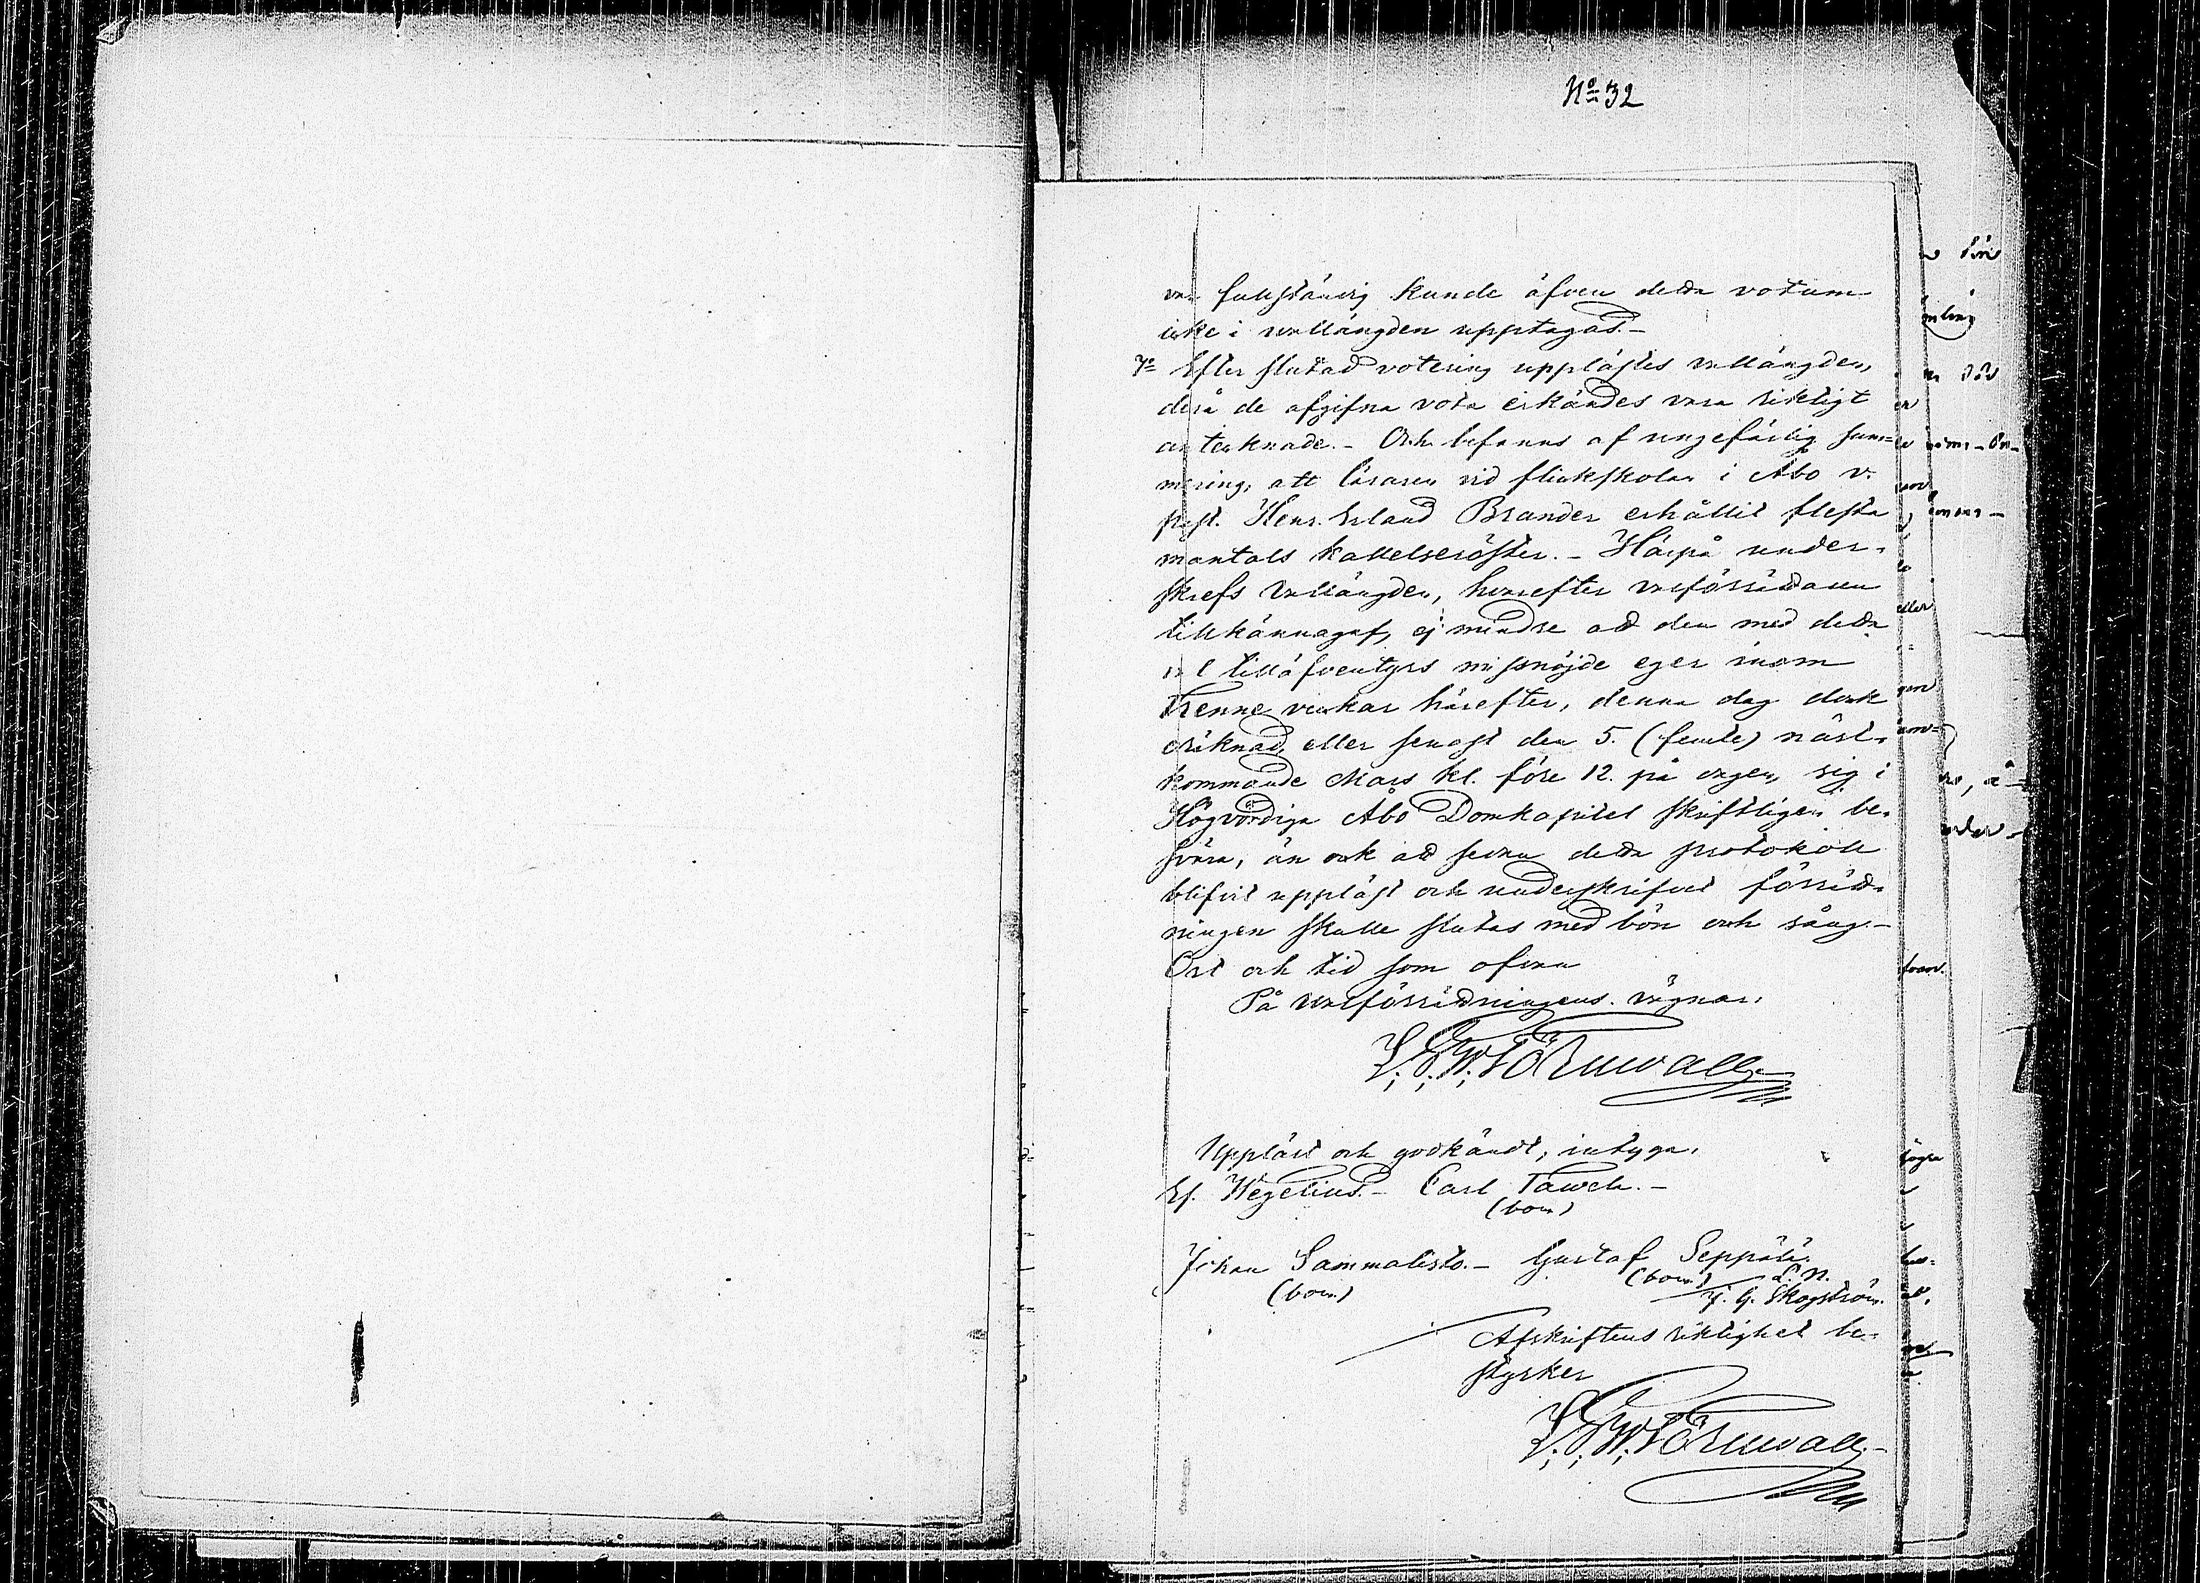 No 32
var fullständig kunde äfven detta votum
icke i vallängden upptagas. -
7o Efter slutad votering upplästes vallängden,
derå de afgifna vota erkändes vara riktigt
antecknade. - Och befanns af ungefärlig sum=
mering, att läraren vid flickskolan i Åbo v.
past. Henr. Erland Brander erhållit flesta
mantals kallelseröster. - Härpå under-
skrefs vallängden, hvarefter valförrättaren
tillkännagaf, ej mindre att den med detta
val tilläfventyrs missnöjde eger inom
Trenne veckor härefter, denna dag dock
oräknad, eller senast den 5. (femte) näst-
kommande Mars kl. före 12. på dagen, sig i
Högvördiga Åbo Domkapitel skriftligen be-
svära, än ock att sedan detta protokoll
blifvit uppläst och underskrifvet förrätt-
ningen skulle slutas med bön och sång. -
Ort och tid som ofvan
På valförrättningens vägnar:
Törnwall
Uppläst och godkändt, intyga:
Ef. Hegelius. - Carl Tawela. -
(bom)
Johan Sammalisto. - Gustaf Seppälä.
(bom.) (bom.) L. N.
J. G. Skogström.
Afskriftens riktighet be-
styrker
Törnwall